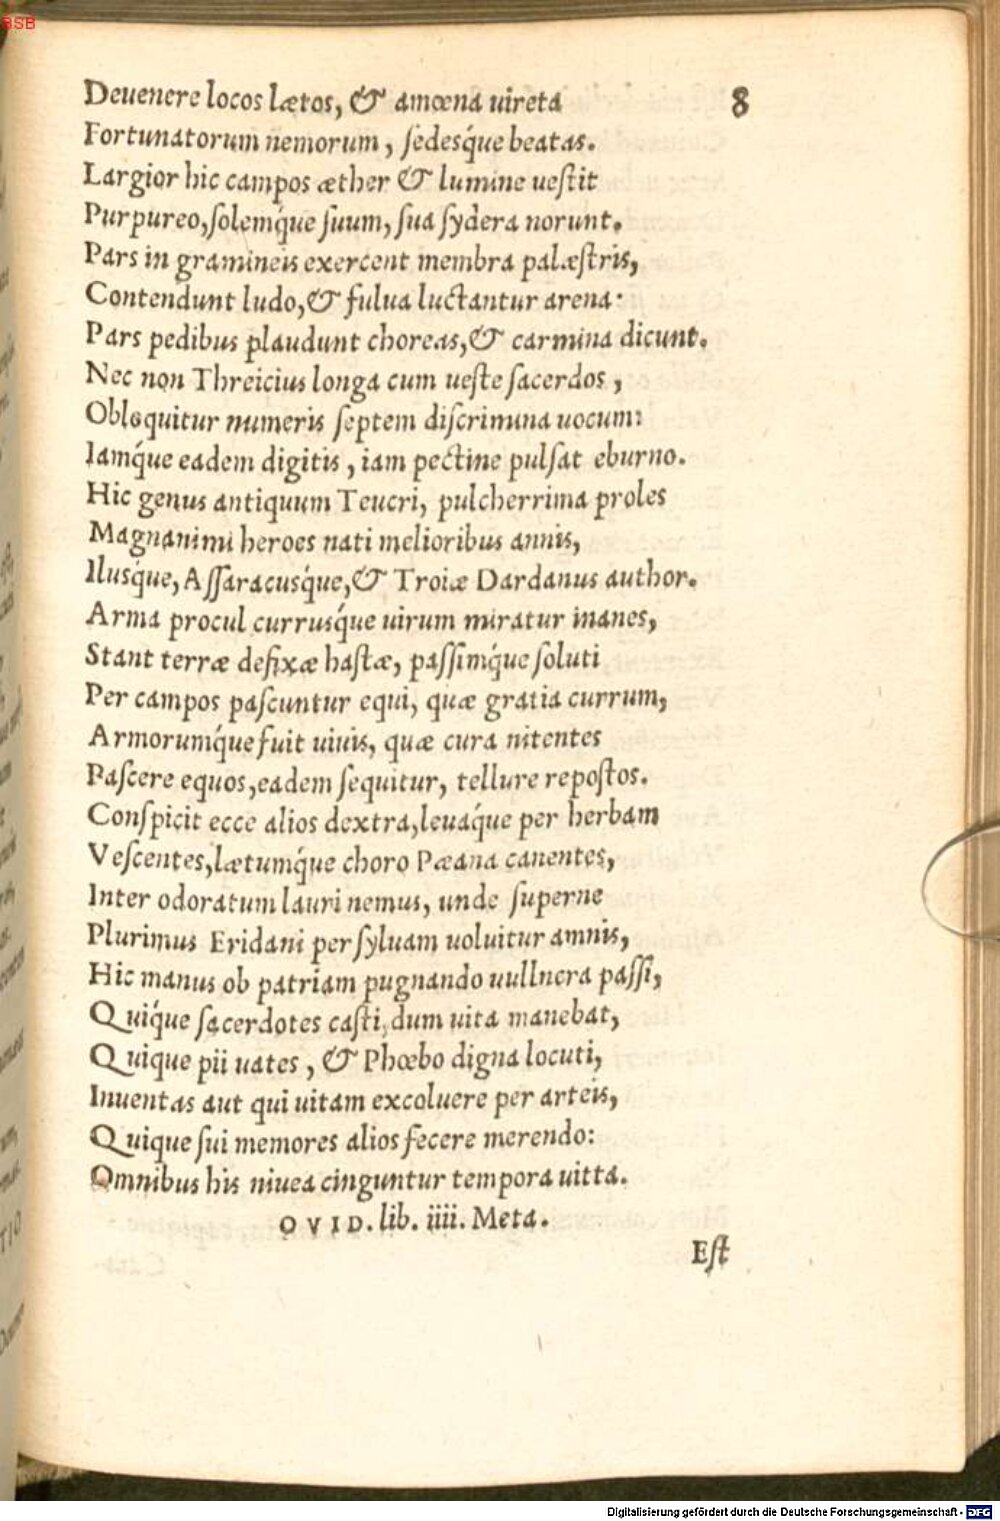 BSB
Deuenere locos lætos, & amœna uireta 8
Fortunatorum nemorum, ſedesq́ue beatas.
Largior hic campos æther & lumine ueſtit
Purpureo, ſolemq́ue ſuum, ſua ſydera norunt.
Pars in gramineis exercent membra palæſtris,
Contendunt ludo, & fulua luctantur arena:
Pars pedibus plaudunt choreas, & carmina dicunt.
Nec non Threicius longa cum ueſte ſacerdos,
Obloquitur numeris ſeptem diſcrimina uocum:
Iamq́ue eadem digitis, iam pectine pulſat eburno.
Hic genus antiquum Teucri, pulcherrima proles
Magnanimi heroes nati melioribus annis,
Ilusq́ue, Aſſaracusq́ue, & Troiæ Dardanus author.
Arma procul currusq́ue uirum miratur inanes,
Stant terræ defixæ haſtæ, paſſimq́ue ſoluti
Per campos paſcuntur equi, quæ gratia currum,
Armorumq́ue fuit uiuis, quæ cura nitentes
Paſcere equos, eadem ſequitur, tellure repoſtos.
Conſpicit ecce alios dextra, leuaq́ue per herbam
Veſcentes, lætumq́ue choro Pæana canentes,
Inter odoratum lauri nemus, unde ſuperne
Plurimus Eridani per ſyluam uoluitur amnis,
Hic manus ob patriam pugnando uullnera paſſi,
Quiq́ue ſacerdotes caſti, dum uita manebat,
Quique pii uates, & Phœbo digna locuti,
Inuentas aut qui uitam excoluere per arteis,
Quique ſui memores alios fecere merendo:
Omnibus his niuea cinguntur tempora uitta.
OVID. lib. iiii. Meta.
Eſt
Digitalisierung gefördert durch die Deutsche Forschungsgemeinschaft - DFG